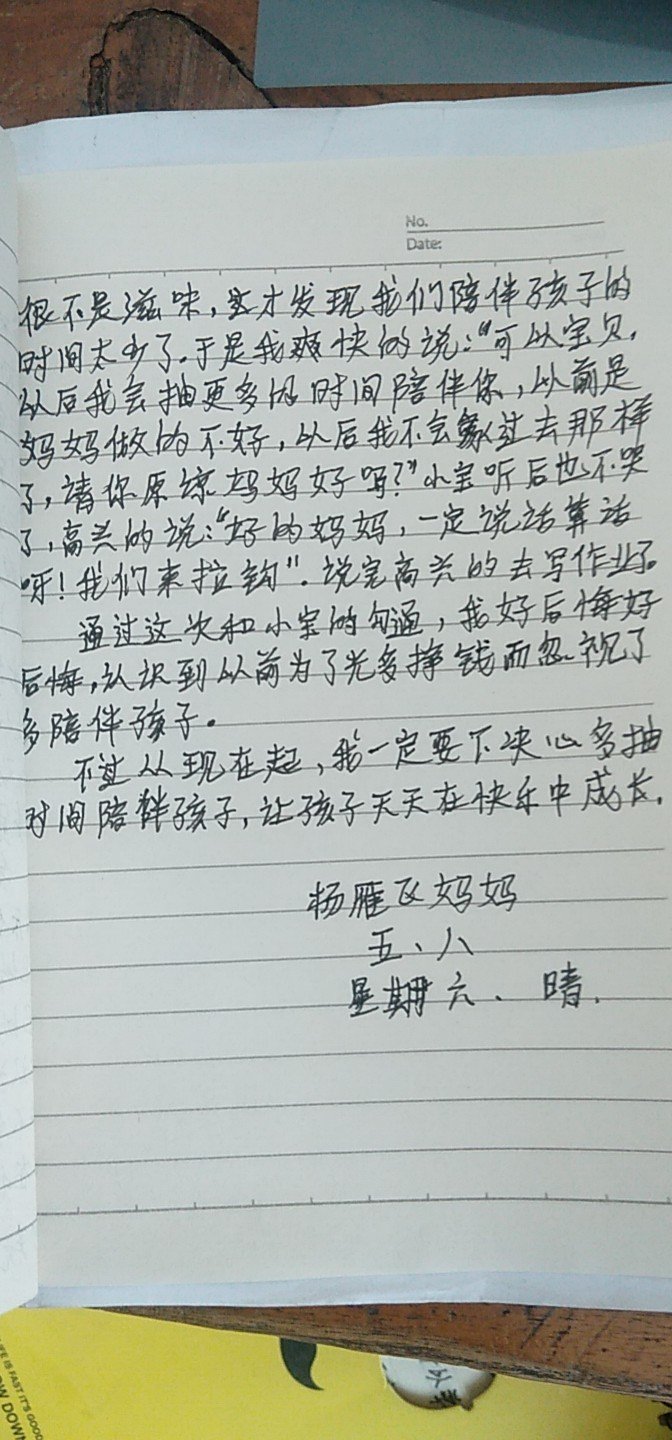 No.
Date:
很不是滋味，这才发现我们陪伴孩子的
时间太少了。于是我爽快的说：“可以宝贝，
以后我会抽更多的时间陪伴你，以前是
妈妈做的不好，以后我不会象过去那样
了，请你原谅妈妈好吗？”小宝听后也不哭
了，高兴的说：“好的妈妈，一定说话算话
呀！我们来拉钩”．说完高兴的去写作业了。
通过这次和小宝的勾通，我好后悔好
后悔，认识到以前为了光多挣钱而忽视了
多陪伴孩子。
不过从现在起，我一定要下决心多抽
时间陪伴孩子，让孩子天天在快乐中成长．
杨雁飞妈妈
五、八
星期六．晴．
LIFE IS FAST IT'S GOOD
OW DOWN